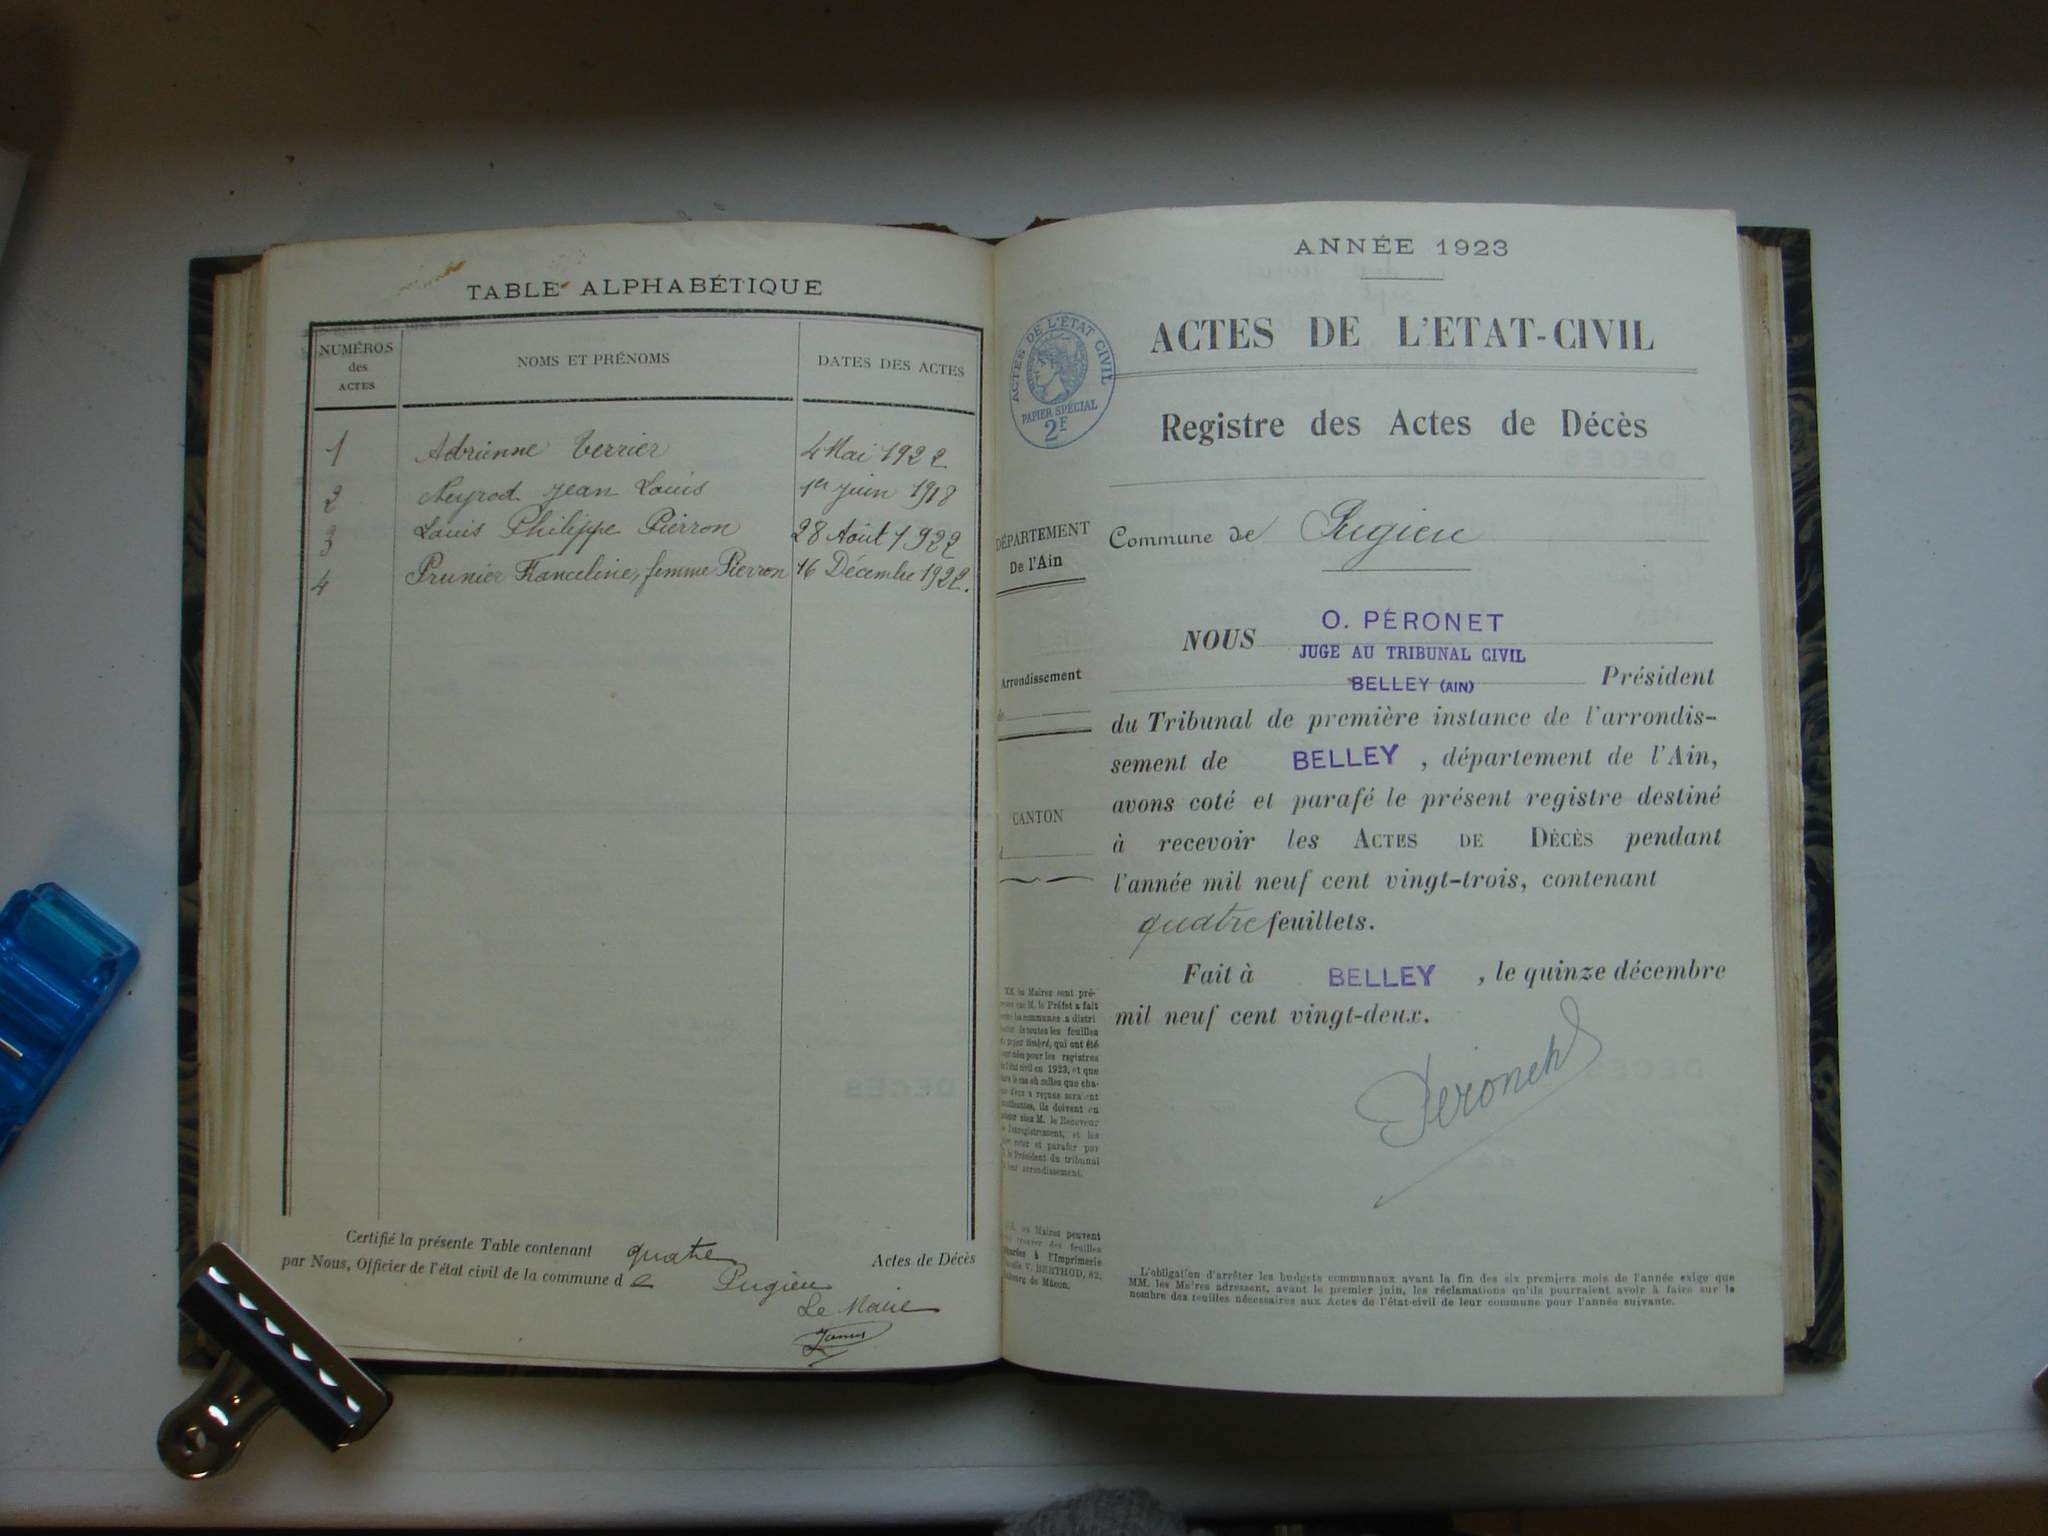 TABLE ALPHABÉTIQUE
NUMÉROS des ACTES
NOMS ET PRÉNOMS
DATES DES ACTES
1 Adrienne Verrier 4 Mai 1922
2 Neyrod Jean Louis 1er Juin 1918
3 Louis Philippe Pierron 28 Août 1922
4 Prunier Franceline, femme Pierron 16 Décembre 1922.
Certifié la présente Table contenant quatre Actes de Décès
par Nous, Officier de l'état civil de la commune de Pugieu
Le Maire
ANNÉE 1923
ACTES DE L'ÉTAT CIVIL
PAPIER SPÉCIAL
2F
ACTES DE L'ETAT-CIVIL
Registre des Actes de Décès
DÉPARTEMENT
De l'Ain
Arrondissement
CANTON
Commune de Pugieu
NOUS O. PÉRONET
JUGE AU TRIBUNAL CIVIL
BELLEY (AIN) Président
du Tribunal de première instance de l'arrondis-
sement de BELLEY, département de l'Ain,
avons coté et parafé le présent registre destiné
à recevoir les ACTES DE DÉCÈS pendant
l'année mil neuf cent vingt-trois, contenant
quatre feuillets.
Fait à BELLEY, le quinze décembre
mil neuf cent vingt-deux.
Péronet
MM. les Maires sont pré-
que M. le Préfet a fait
communes a distri
de toutes les feuilles
papier timbré, qui ont été
pour les registres
l'état civil en 1923, et que
le cas où celles que cha-
d'eux a reçues seraient
ils doivent en
M. le Receveur
l'enregistrement, et les
coter et parafer par
le Président du tribunal
leur arrondissement.
les Maires peuvent
trouver des feuilles
à l'Imprimerie
V. BERTHOD, 82,
de Mâcon.
L'obligation d'arrêter les budgets communaux avant la fin des six premiers mois de l'année exige que
MM. les Maires adressent, avant le premier juin, les réclamations qu'ils pourraient avoir à faire sur le
nombre des feuilles nécessaires aux Actes de l'état-civil de leur commune pour l'année suivante.